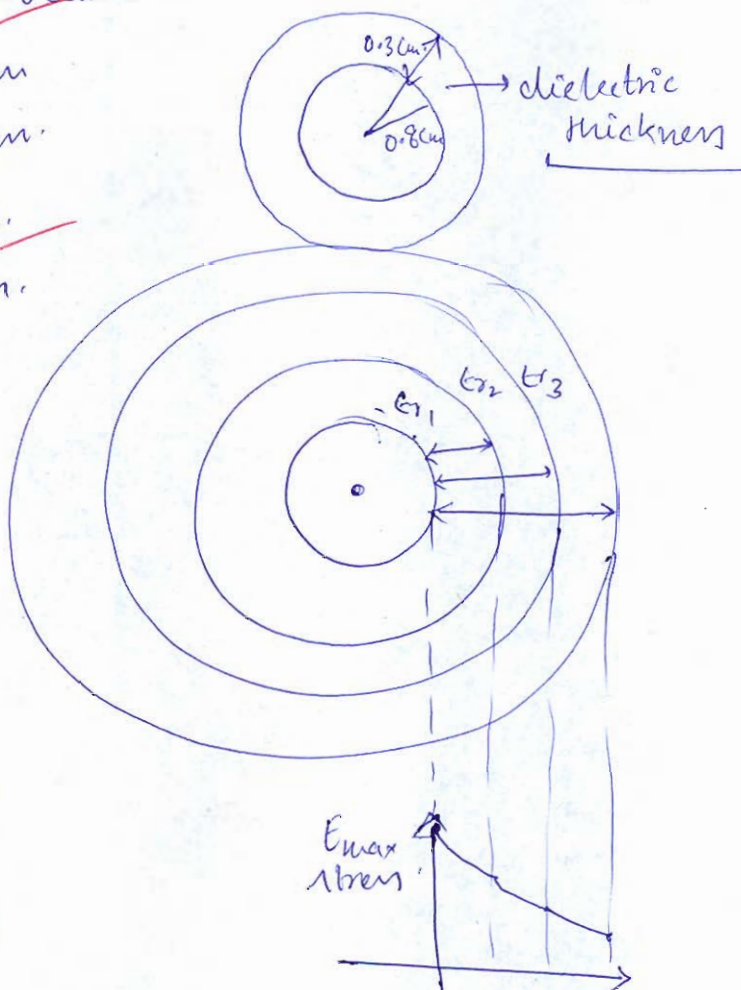 0.3cm.
→ dielectric
thickness
0.8cm
εr1
εr2
εr3
Emax
stress.